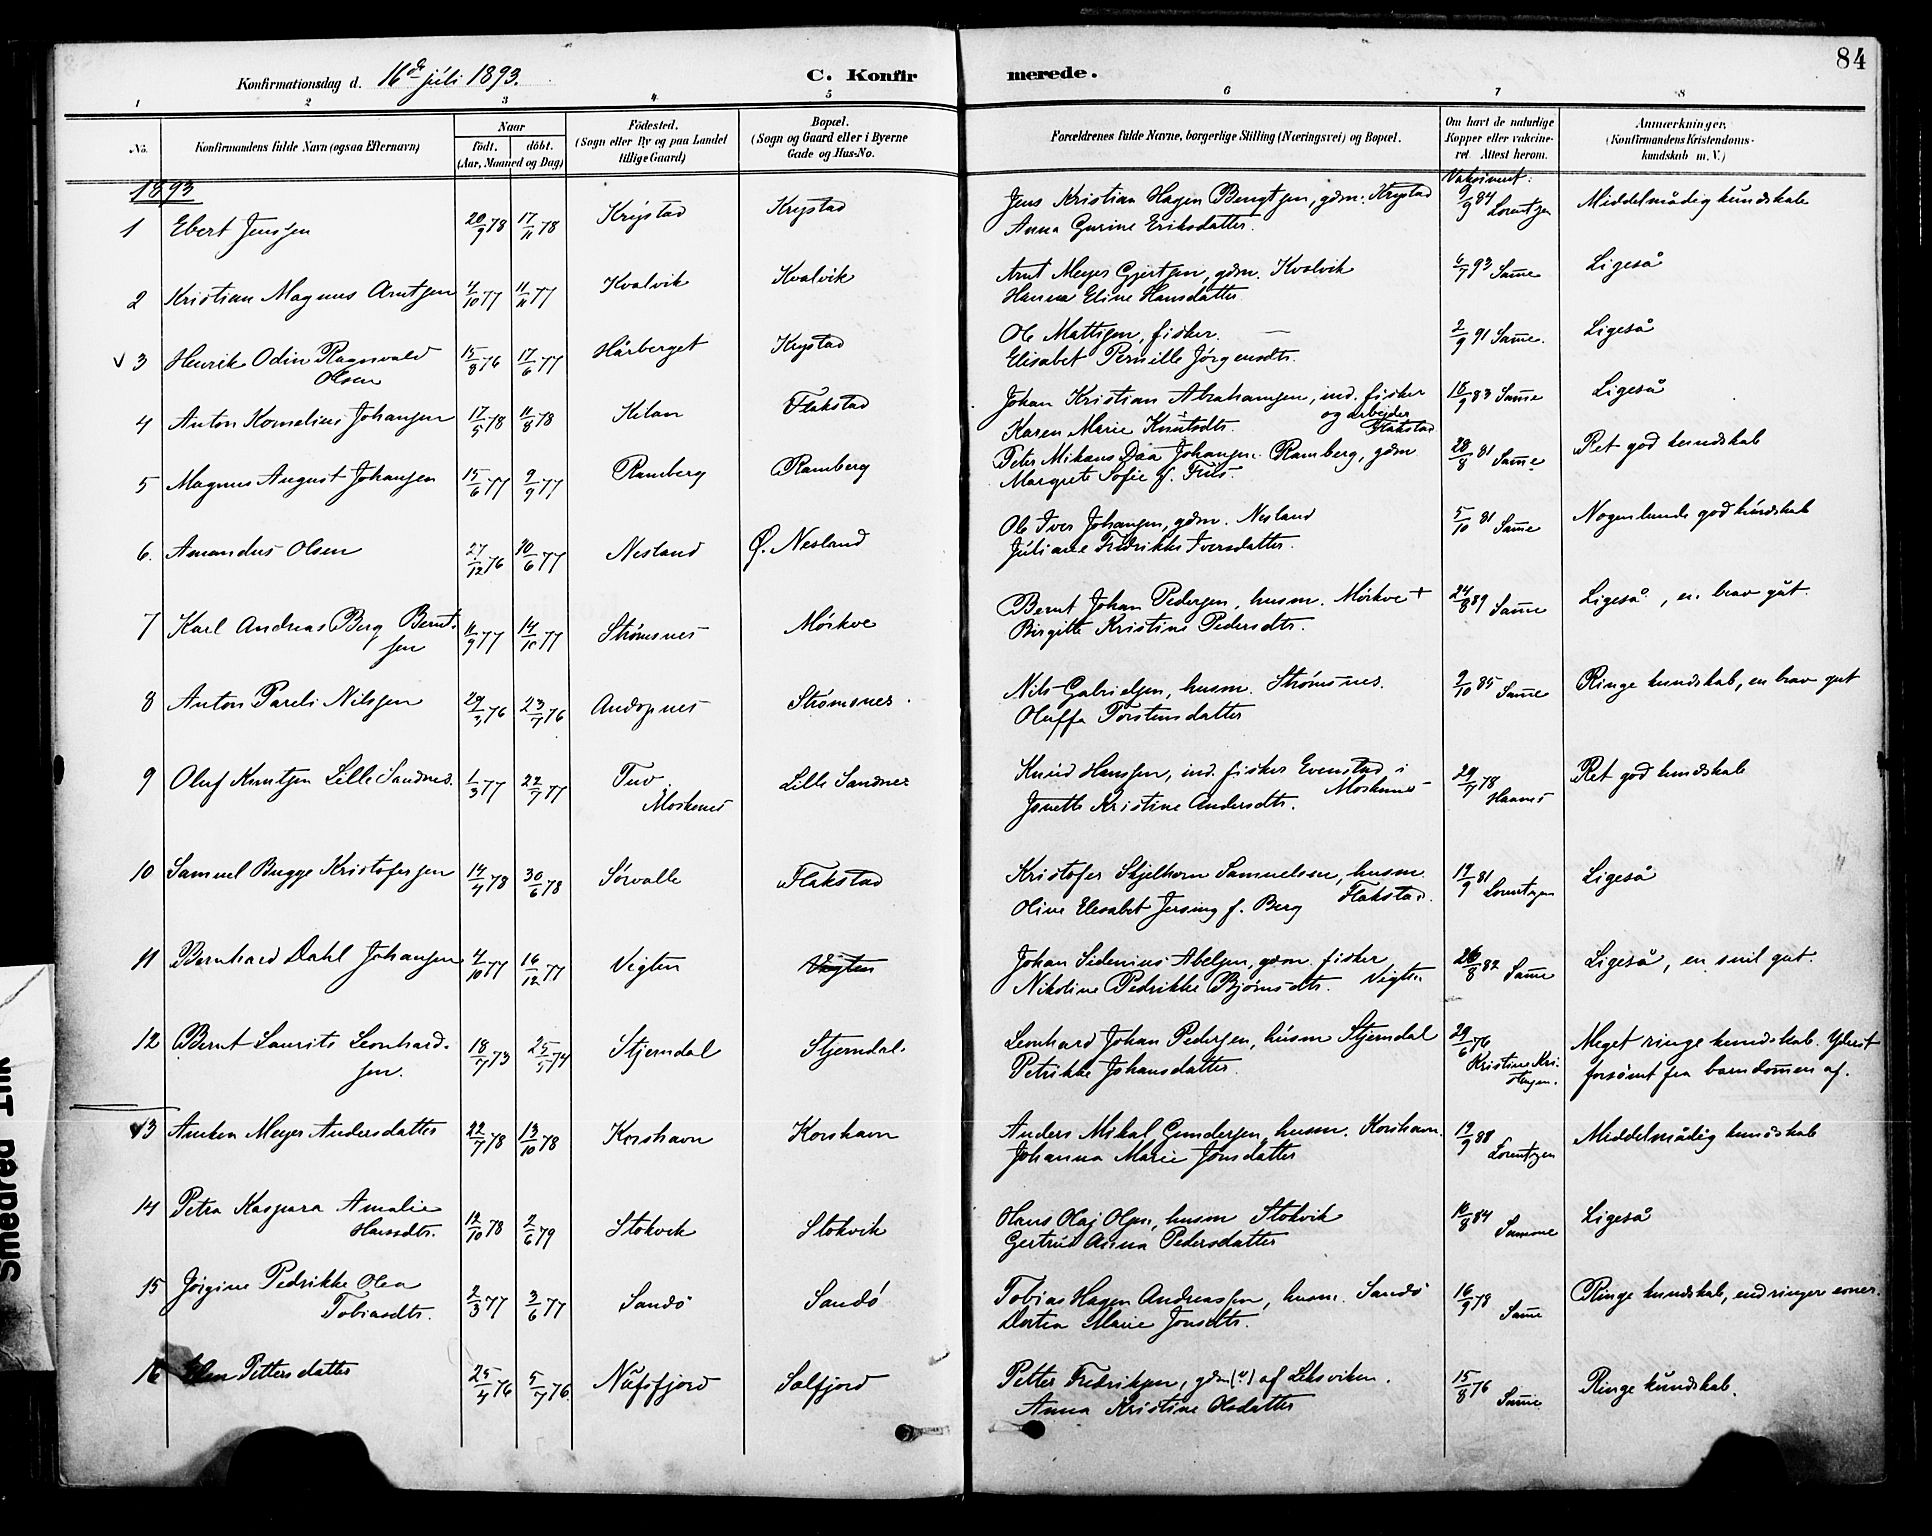 84
Konfirmationsdag d. 16de júli 1893.
C. Konfirmerede.
1 2 3 4 5 6 7 8
No.
Konfirmandens fulde Navn (ogsaa Efternavn)
Naar
födt. döbt.
(Aar, Maaned og Dag)
Födested.
(Sogn eller By og paa Landet
tillige Gaard)
Bopæl.
(Sogn og Gaard eller i Byerne
Gade og Hus-No.
Forældrenes fulde Navne, borgerlige Stilling (Næringsvei) og Bopæl.
Om havt de naturlige
Kopper eller vakcine-
ret. Attest herom.
Anmærkninger,
(Konfirmandens Kristendoms-
kundskab m. V.)
1893
Vaksineret:
1 Ebert Jenssen 20/9 78 17/11 78 Krystad Krystad Jens Kristian Hagen Bengtsen, gdm. Krystad 9/9 84 Lorentzen Middelmådig kundskab
Anna Gurine Eriksdatter.
2 Kristian Magnus Arntsen 4/10 77 11/11 77 Kvalvik Kvalvik Arnt Meyer Gjertsen, gdm. Kvalvik 6/7 93 Samme Ligeså
Hanna Eline Hansdatter.
3 Henrik Odin Ragnvald 15/8 76 17/6 77 Hårberget Krystad Ole Mattisen, fisker. — 2/9 91 Samme. Ligeså
Olsen Elisabet Pernille Jörgensdtr.
4 Anton Kornelius Johansen 17/5 78 11/8 78 Kilan Flakstad Johan Kristian Abrahamsen, ind. fisker 18/9 83 Samme Ligeså
og arbejder
Karen Marie Knútsdtr. Flakstad
5 Magnus August Johansen 15/6 77 9/9 77 Ramberg Ramberg Peter Mikaus Daa Johansen Ramberg, gdm 28/8 81 Samme Ret god kundskab
Margrete Sofie f. Friis.
6. Amandus Olsen 27/12 76 10/6 77 Nesland Ø. Nesland Ole Iver Johansen, gdm. Nesland 5/10 81 Samme Nogenlunde god kúndskab
Júliane Fredrikke Iversdatter.
7 Karl Andreas Berg Bernt- 11/9 77 14/10 77 Strömsnes Mörkve Bernt Johan Pedersen, husm. Mörkve + 24/8 89 Samme Ligeså, en brav gút.
sen Birgitte Kristine Pedersdtr.
8 Anton Pareli Nilssen 29/3 76 23/7 76 Andopnes Strömsnes. Nils Gabrielsen, husm. Strömsnes. 9/10 85 Samme Ringe kundskab, en brav gut
Oluffa Torstensdatter
9 Oluf Knutsen Lille Sandnes. 1/3 77 22/7 77 Tuv Lille Sandnes Knúd Hanssen, ind. fisker Evenstad i 29/7 78 Haanes Ret god kundskab
Moskenes Moskenes
Janette Kristine Andersdtr.
10 Samuel Bugge Kristofersen 14/4 78 30/6 78 Sörvalle Flakstad Kristofer Skjelhorn Samuelsen, husm. 19/9 81 Lorentzen Ligeså
Oline Elisabet Jersing f. Berg Flakstad.
11 Bernhard Dahl Johansen 4/10 77 16/12 77 Vigten Vigten Johan Sidenius Abelsen, gdm. fisker 26/8 82 Samme Ligeså, en snil gut.
Nikoline Pedrikke Bjömsdtr. Vigten
12 Bernt Laurits Leonhard- 18/7 73 25/5 74 Stjerndal Stjerndal. Leonhard Johan Pedersen, húsm Stjerndal 29/6 76 Meget ringe kundskab. Yderst
sen. Petrikke Johansdatter. Kristine Kri- forsömt fra barndommen af.
stensen.
13 Anken Meyer Andersdatter 22/7 78 13/10 78 Korshavn Korshavn Anders Mikal Gundersen, husm. Korshavn. 19/9 88 Lorentzen Middelmådig kundskab
Johanna Marie Jonsdatter
14 Petra Kaspara Amalie 12/10 78 2/6 79 Stokvik Stokvik Hans Olaj Olsen, husm Stokvik 16/8 84 Samme Ligeså
Hansdtr. Gertrúd Anna Pedersdatter
15 Jörgine Pedrikke Olea 2/3 77 3/6 77 Sandö Sandö Tobias Hagen Andreassen, husm. Sandö 16/9 78 Samme Ringe kundskab, end ringer evner.
Tobiasdtr. Dortea Marie Jonsdtr.
16 Elen Pettersdatter 25/4 76 5/7 76. Núfsfjord Selfjord Petter Fredriksen, gdm (?) af Leksviken. 15/8 76 Samme Ringe kúndskab.
Anna Kristine Olsdatter